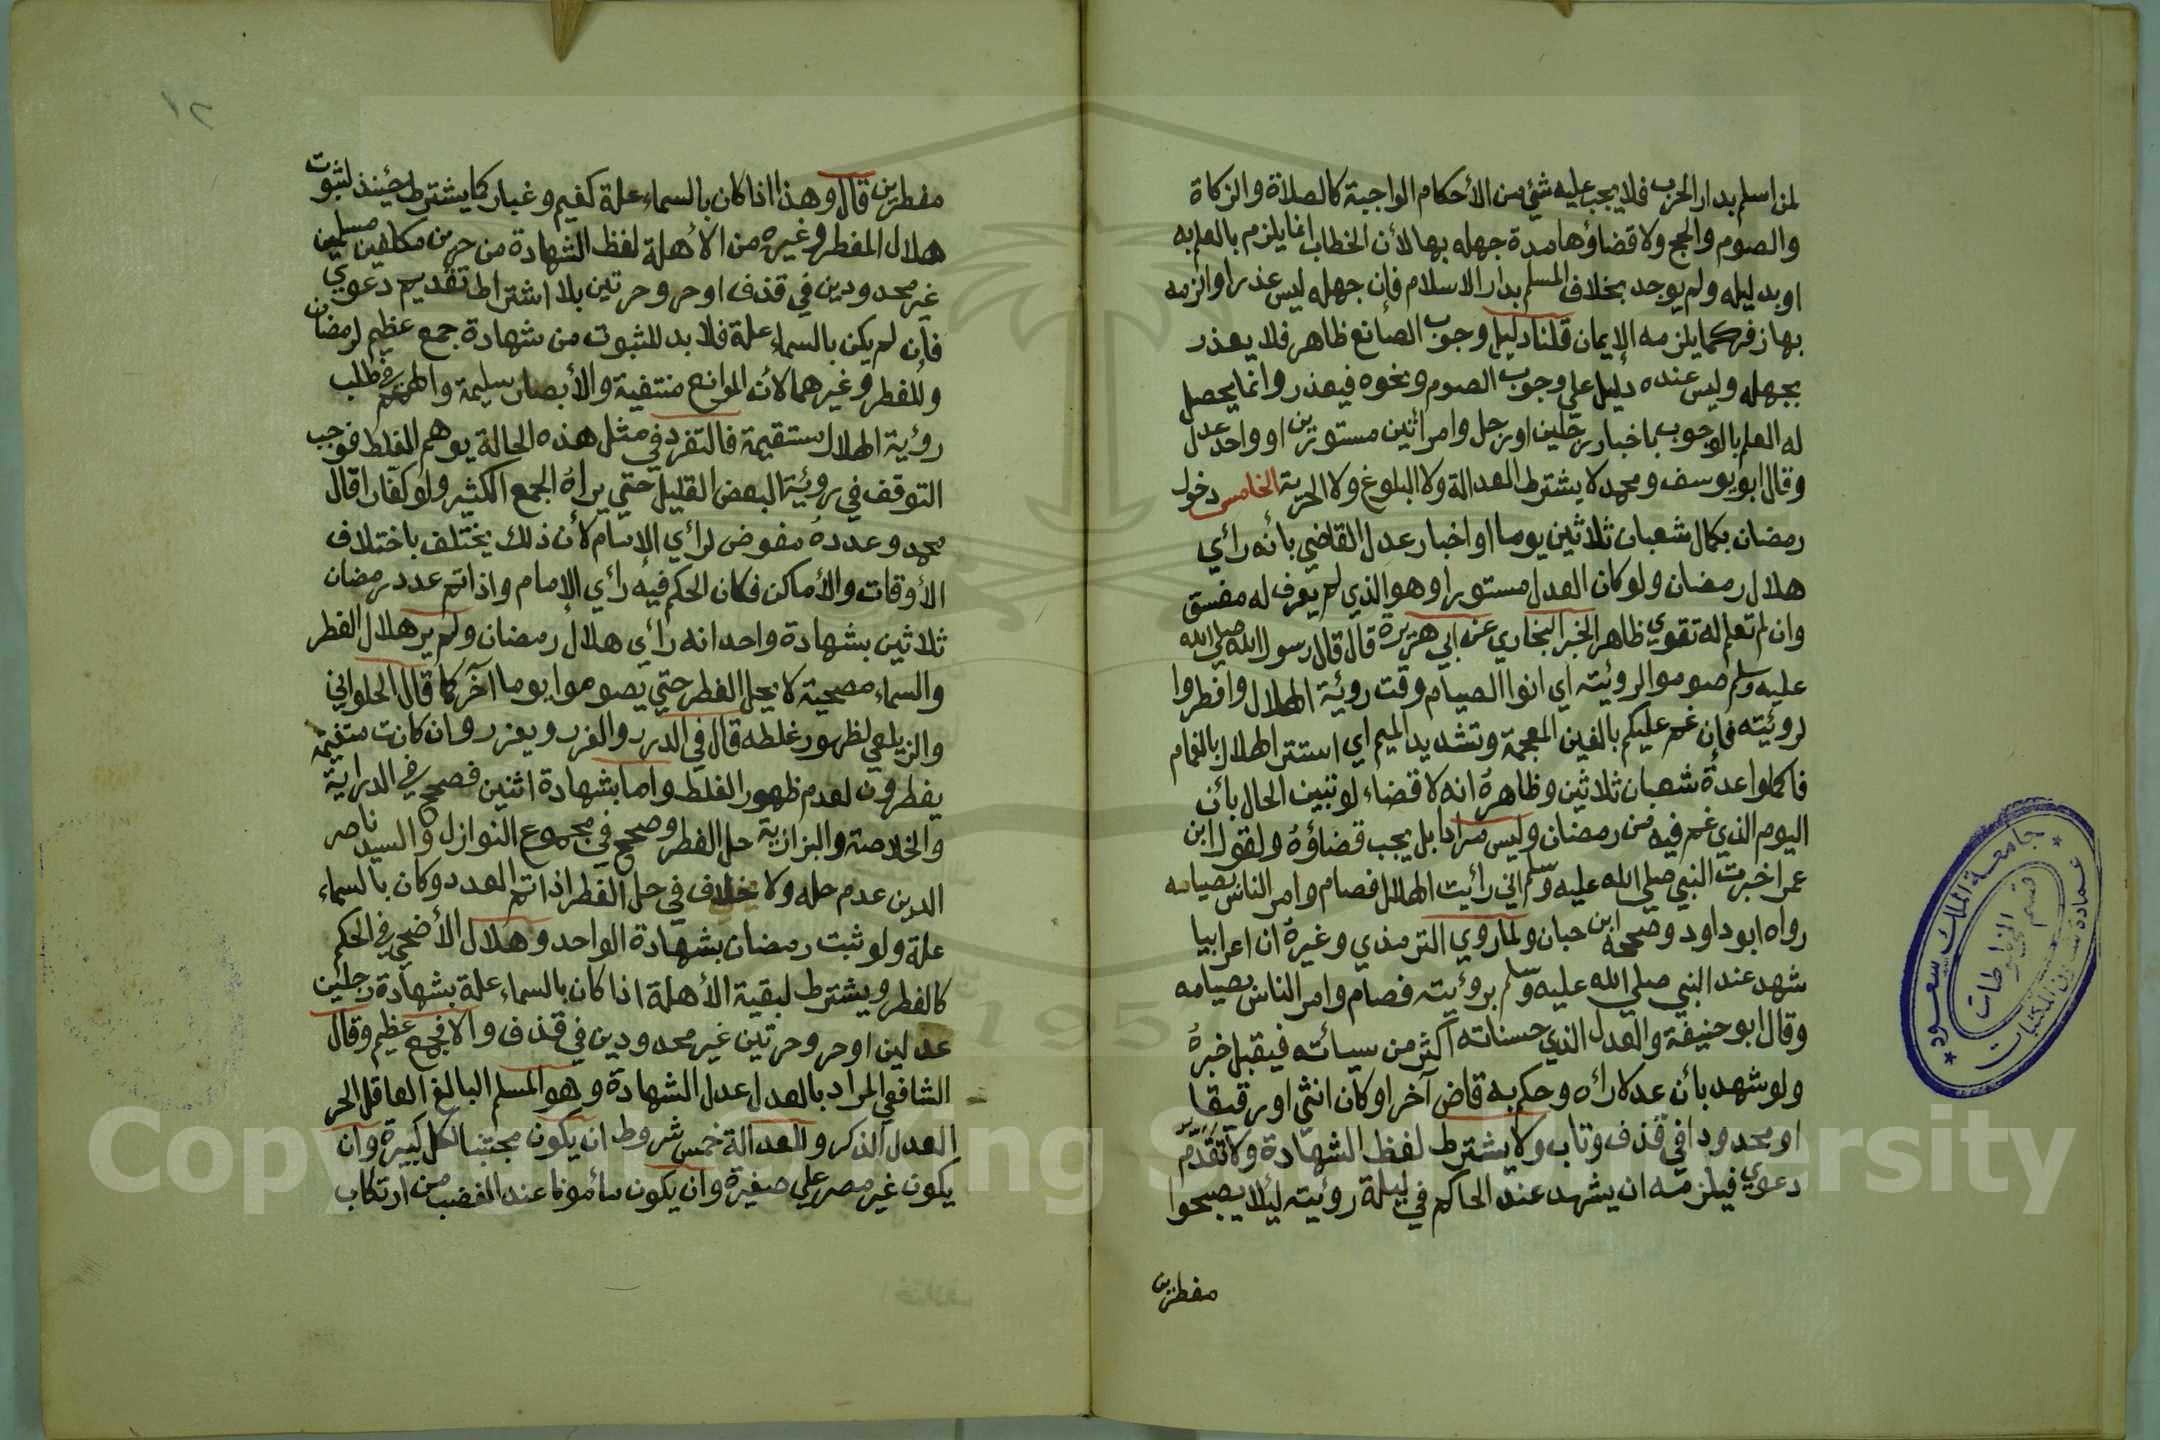 لمن اسلم بدار الحرب فلا يجب عليه شئ من الأحكام الواجبة كالصلاة والزكاة
والصوم والحج ولا قضاؤها مدة جهله بها لأن الخطاب انما يلزم بالعلم به
او بدليله ولم يوجد بخلاف المسلم بدار الاسلام فإن جهله ليس عذرا والزمه
بها زفر كما يلزمه الإيمان قلنا دليل وجوب الصانع ظاهر فلا يعذر
بجهله وليس عنده دليل علي وجوب الصوم ونحوه فيعذر وانما يحصل
له العلم بالوجوب باخبار رجلين او رجل وامرأتين مستورين او واحد عدل
وقال ابو يوسف ومحمد لا يشترط العدالة ولا البلوغ ولا الحرية الخامس دخول
رمضان بكمال شعبان ثلاثين يوما او اخبار عدل القاضي بأنه رأي
هلال رمضان ولو كان العدل مستورا وهو الذي لم يعرف له مفسق
وان لم تعلم له تقوي ظاهر الخبر البخاري عن ابي هريرة قال قال رسول الله صلي الله
عليه وسلم صوموا لرؤيته اي انوا الصيام وقت رؤية الهلال وافطروا
لرؤيته فإن غم عليكم بالغين المعجمة وتشديد الميم اي استتر الهلال بالغمام
فاكملوا عدة شعبان ثلاثين وظاهره انه لا قضاء لو تبين الحال بأن
اليوم الذي غم فيه من رمضان وليس مرادا بل يجب قضاؤه ولقول ابن
عمر اخبرت النبي صلي الله عليه وسلم اني رأيت الهلال فصام وامر الناس بصيامه
رواه ابو داود وصححه ابن حبان ولما روي الترمذي وغيره ان اعرابيا
شهد عند النبي صلي الله عليه وسلم برؤيته فصام وامر الناس بصيامه
وقال ابو حنيفة والعدل الذي حسناته اكثر من سيأته فيقبل خبره
ولو شهد بأن عدلا رأه وحكم به قاض آخر او كان انثي او رقيقا
او محدودا في قذف وتاب ولا يشترط لفظ الشهادة ولا تقدم
دعوي فيلزمه ان يشهد عند الحاكم في ليلة رؤيته لئلا يصبحوا
مفطرين
مفطرين قال وهذا اذا كان بالسماء علة كغيم وغبار كما يشترط حينئذ لثبوت
هلال الفطر وغيره من الأهلة لفظ الشهادة من حرين مكلفين مسلمين
غير محدودين في قذف او حر وحرتين بلا اشتراط تقديم دعوي
فأن لم يكن بالسماء علة فلا بد للثبوت من شهادة جمع عظيم لرمضان
وللفطر وغيرهما لأن الموانع منتفية والأبصار سليمة والهمم في طلب
رؤية الهلال مستقيمة فالتفرد في مثل هذه الحالة يوهم الغلط فوجب
التوقف في رؤية البعض القليل حتي يراه الجمع الكثير ولو كفارا قال
محمد وعدده مفوض لرأي الامام لأن ذلك يختلف باختلاف
الأوقات والأماكن فكان الحكم فيه رأي الإمام واذا تم عدد رمضان
ثلاثين بشهادة واحد انه رأي هلال رمضان ولم ير هلال الفطر
والسماء مصحية لا يحل الفطر حتي يصوموا يوما آخر كما قال الحلواني
والزيلعي لظهور غلطه قال في الدرر والغرر ويعزر وان كانت متغيمة
يفطرون لعدم ظهور الغلط واما بشهادة اثنين فصحح في الدراية
والخلاصة والبزازية حل الفطر وصحح في مجموع النوازل والسيد ناصر
الدين عدم حله ولا خلاف في حل الفطر اذا تم العدد وكان بالسماء
علة ولو ثبت رمضان بشهادة الواحد وهلال الأضحي في الحكم
كالفطر ويشترط لبقية الأهلة اذا كان بالسماء علة بشهادة رجلين
عدلين او حر وحرتين غير محدودين في قذف والا فجمع عظيم وقال
الشافعي المراد بالعدل عدل الشهادة وهو المسلم البالغ العاقل الحر
العدل الذكر والعدالة خمس شروط ان يكون مجتنبا لكل كبيرة وان
يكون غير مصر علي صغيرة وان يكون مأمونا عند الغضب من ارتكاب
جامعة الملك سعود
عمادة شئون المكتبات
قسم المخطوطات
1957
Copyright © King Saud University